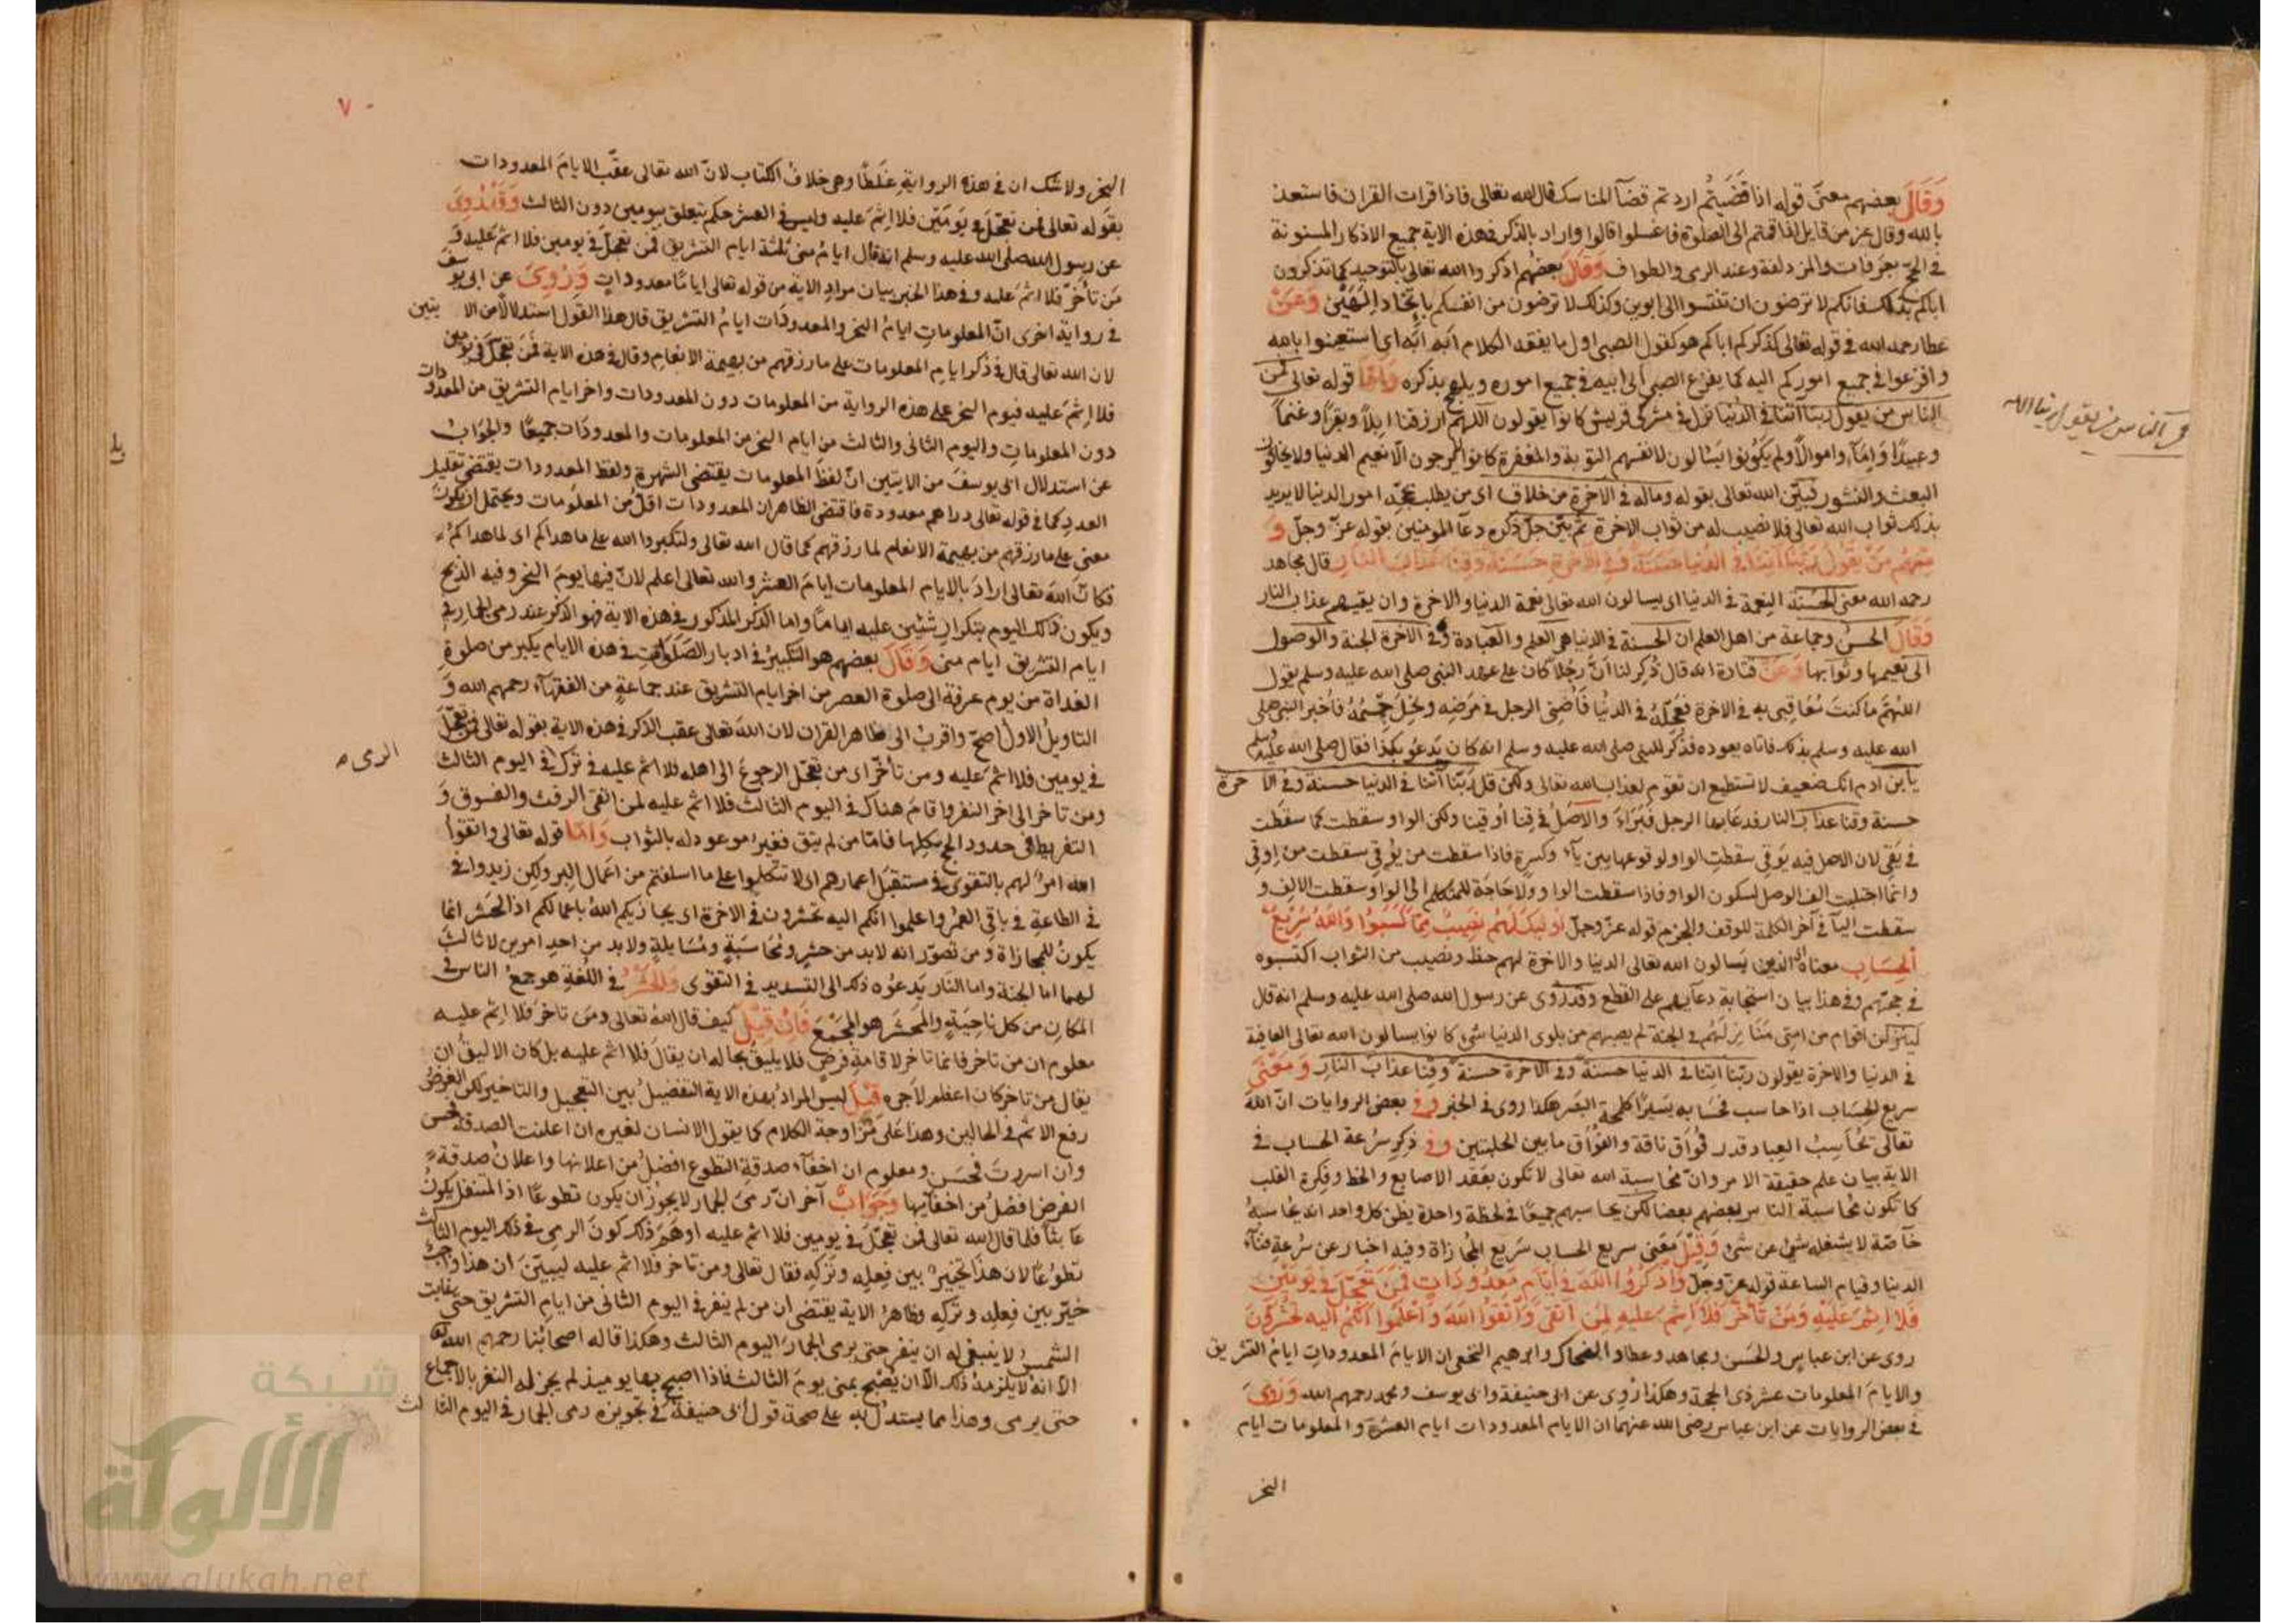 وَقَالَ بعضهم معنى قوله اذا قَضَيتُم اردتم قضآ المناسك قال الله تعالى فاذا قرات القران فاستعذ
بالله وقال عز من قايل اذا قمتم الى الصلوة فاغسلوا قالوا واراد بالذكر فى هذه الاية جميع الاذكار المسنونة
فى الحج بعرفات والمزدلفة وعند الرمى والطواف وَقَالَ بعضهم اذكروا الله تعالى بالتوحيد كما تذكرون
اباكم بذلك فانكم لا ترضون ان تنسبوا الى ابوين وكذلك لا ترضون من انفسكم باتخاد الٰهَيْن وَعَنْ
عطا رحمه الله فى قوله تعالى كذكركم اباكم هو كقول الصبى اول ما يفقه الكلام اَبَه اَبَه اى استعينوا بالله
وافزعوا فى جميع اموركم اليه كما يفزع الصبى الى ابيه فى جميع اموره ويلهج بذكره وَامَّا قوله تعالى فمن
الناس من يقول ربنا اتنا فى الدنيا نزل فى مشركى قريش كانوا يقولون اللهم ارزقنا ابلاً وبقراً وغنماً
وعبيدًا وَاِمَآء واموالًا ولم يكونوا يَسْالون لانفسهم التوبة والمغفرة كانوا لا يرجون الّا نعيم الدنيا ولا يخافون
البعث والنشور فبيّن الله تعالى بقوله وماله فى الاخرة من خلاق اى من يطلب بحجّه امور الدنيا لا يريد
بذلك ثواب الله تعالى فلا نصيب له من ثواب الاخرة ثم بيّن جلّ ذكره دعآ المومنين بقوله عزّ وجلّ وَ
مِنهُم مَنْ يَقُولُ رَبَّنَا اٰتِنَا فى الدُنيَا حَسَنَةً وَفِى الاٰخِرَةِ حَسَنَةً وَقِنَا عَذَابَ النَّارِ قال مجاهد
رحمه الله معنى الحَسَنة النِعمة فى الدنيا اى يسالون الله تعالى نعمة الدنيا والاخرة وان يقيهم عذاب النار
وَقَالَ الحسن وجماعة من اهل العلم ان الحسنة فى الدنيا هى العلم والعبادة وفى الاخرة الجنة والوصول
الى نعيمها وثوابها وَعَنْ قتادة انه قال ذُكِر لنا اَنَّ رجُلًا كان على عهد النبى صلى الله عليه وسلم يقول
اللهُمَّ ما كنتَ مُعَاقِبى به فى الاخرة فعَجِّلهُ فى الدنيا فَاُضنِى الرجل فى مَرَضِه ونَحِلَ جِسْمُهُ فأُخبر النبى صلى
الله عليه وسلم بذلك فاتاه يعوده فذُكِّر للنبى صلى الله عليه وسلم انه كان يَدعُو بكذا فقال صلى الله عليه وسلم
يابن ادم انك ضعيف لا تستطيع ان تقوم لعذاب الله تعالى ولكن قل رَبّنا آتنا فى الدنيا حسنة وفى الاخرة
حسنة وقنا عذاب النار فدعَا بها الرجل فَبَرَاَء وَالاَصلُ فى قِنا اُوقينا ولكن الواو سقطت كما سقطت
فى يَقى لان الاصل فيه يَوقى سقطت الواو لوقوعها بين يآء وكسرةٍ فاذا سقطت من يَوقِى سقطت من اِوقِى
وانما اجتلبت الف الوصل لسكون الواو فاذا سقطت الواو ولا حَاجَة للمتكلم الى الواو سقطت الالِف و
سقطت اليآ فى آخر الكلمة للوقف والجزم قوله عزّ وجلّ اُولٰئِكَ لَهُم نَصِيبٌ مِمَّا كَسَبُوا وَاللهُ سَرِيْعُ
الْحِسَابِ معناه ان الذين يَسالون الله تعالى الدنيا والاخرة لهم حظ ونصيب من الثواب اكتسبوه
فى حجتهم وفى هذا بيان استجابة دعآيهم على القطع وقد رُوى عن رسول الله صلى الله عليه وسلم انه قال
ليَنزِلن اقوام من امتى مَنَازِلَهُم فى الجنة لم يصبهم من بلوى الدنيا شئ كانوا يسالون الله تعالى العافية
فى الدنيا والاخرة يقولون ربّنا اتنا فى الدنيا حسنة وفى الاخرة حسنة وقِنا عذاب النار وَمَعْنَى
سريع الحِسَاب اذا حاسب فحسَابه يَسيرًا كلمحة البَصر هكذا روى فى الخبر وفى بعض الروايات انّ اللهَ
تعالى يُحَاسِبُ العِباد قدر فُواق ناقة والفُوَاق ما بين الحلبتين وفى ذِكرِ سُرعة الحساب فى
الاية بيان علم حقيقة الامر وانّ مُحَاسبة الله تعالى لا تكون بعَقد الاصابع والخط وفِكرة القلب
كما تكون مُحَاسبة الناس بعضهم بعضا لكن يحاسبهم جميعًا فى لحظة واحدة يظن كل واحد انه يُحَاسبهُ
خآصّة لا يشغله شئ عن شئ وَقِيْلَ مَعنى سريع الحساب سَريع المُجَازاة وفيه اخبار عن سُرعةِ فنآء
الدنيا وقيام الساعة قوله عزّ وجلّ وَاذْكُرُوا اللهَ فى اَيَّامٍ مَعدُودَاتٍ فَمَن تَعَجَّلَ فِى يَومَيْنِ
فَلَا اِثْمَ عَلَيْهِ وَمَنْ تَأَخَّرَ فَلَا اِثْمَ عَلَيهِ لِمَنِ اتَّقَى وَاتَّقُوا اللهَ وَاعْلَمُوا اَنَّكُمْ اليه تُحْشَرُونَ
روى عن ابن عباسٍ والحَسَن ومجاهد وعطاء والضحاك وابرهيم النخعى ان الايام المعدوداتِ ايامُ التشريق
والايامَ المعلومات عشر ذى الحجة وهكذا رُوِى عن ابى حنيفة وابى يوسف ومحمد رحمهم الله وَرُوِىَ
فى بعض الروايات عن ابن عباس رضى الله عنهما ان الايام المعدودات ايام العشر والمعلومات ايام
النحر
من الناس من يقول ربنا اتنا
٧٠
النحر ولا شك ان فى هذه الرواية غَلَطًا وهى خلافُ الكتاب لانّ الله تعالى عقّب الايامَ المعدودات
بقوله تعالى فمن تعَجّلَ فى يَومَيْنِ فلا اِثمَ عليه وليس فى العشر حكم يتعلق بيومين دون الثالث وَقَدْ رُوِىَ
عن رسول الله صلى الله عليه وسلم انه قال ايامُ منى ثلثة ايام التشريق فمن تعجّلَ فى يومين فلا اثمَ عَليه وَ
مَن تأخّر فلا اثمَ عليه وفى هذا الخبر بيان مرادِ الاية من قوله تعالى ايامًا معدوداتٍ وَرُوِىَ عن ابى يوسف
فى رواية اخرى انّ المعلوماتِ ايامُ النحر والمعدودَات ايامُ التشريق قال هذا القول استدلالًا من الايتين
لان الله تعالى قال فى ذكر ايام المعلومات على ما رزقهم من بهيمة الانعام وقال فى هذه الاية فَمَن تعجّلَ فى يومين
فلا اِثمَ عَليه فيوم النحر على هذه الرواية من المعلومات دون المعدودات واخر ايام التشريق من المعدودات
دون المعلوماتِ واليوم الثانى والثالث من ايام النحر من المعلومات والمعدودَات جميعًا والجَوَابُ
عن استدلال ابى يوسفَ من الايتين انّ لفظَ المعلومات يقتضى الشهرة ولفظ المعدودات يقتضى تقليل
العدد كما فى قوله تعالى دراهم معدودة فاقتضى الظاهر ان المعدودات اقلُّ من المعلومات ويحتمل ان يكونَ
معنى على ما رزقهم من بهيمة الانعام لما رزقهم كما قال الله تعالى ولتكبروا الله على ما هداكم اى لما هداكم
فكانَ اللهَ تعالى ارادَ بالايام المعلومات ايامَ العشر والله تعالى اعلم لانّ فيها يومَ النحر وفيه الذبح
ويكون ذلك اليوم بتكرارِ شئين عليه ايامًا واما الذكر المذكور فى هذه الاية فهو الذكر عند رمى الجمار فى
ايام التشريق ايام منى وَقَالَ بعضهم هو التكبيرُ فى ادبار الصَلَوات فى هذه الايام يكبر من صلوةِ
الغداة من يوم عرفة الى صلوة العصر من اخر ايام التشريق عند جماعةٍ من الفقهآء رحمهم الله وَ
التاويلُ الاول اصحّ واقربُ الى ظاهر القران لان اللهَ تعالى عقب الذكر فى هذه الاية بقوله تعالى فمن تعجّلَ
فى يومين فلا اثمَ عليه ومن تأخّر اى من تعجّل الرجوعَ الى اهله فلا اثم عليه فى ترك فى اليوم الثالث
ومن تاخر الى اخر النفر واقامَ هناك فى اليوم الثالث فلا اثم عليه لمن اتقى الرفث والفسوق وَ
التفريط فى حدود الحج بكلها فامّا من لم يتق فغيرُ موعود له بالثواب وَامّا قوله تعالى واتقوا
الله امرٌ لهم بالتقوى فى مستقبَل اعمارهم اى لا تتكلوا على ما اسلفتم من اعمال البِر ولكن زيدوا فى
فى الطاعةِ فى باقى العمُر واعلموا انكم اليه تحشرون فى الاخرة اى يجازيكم اللهُ باعمالكم اذ الحَشر انما
يكونُ للمجازاة وَمن تصوّر انه لابد من حشرٍ ومُحَاسَبَةٍ ومُسَايلةٍ ولابد من احدِ امرين لا ثالثَ
لهما اما الجنة واما النَار يَدعُوه ذلك الى التسديد فى التقوى وَالحَشْرُ فى اللُغةِ هو جمعُ الناس فى
المكَانِ من كل ناحِيَةٍ والمَحشَر هو المَجْمَعَ فَاِنْ قِيْلَ كيف قال اللهُ تعالى ومَن تاخرَ فَلا اثم عليه
معلوم ان من تاخر فانما تاخر لاقامةِ فرضٍ فلا يليقُ بحاله ان يقالَ فلا اثم عليه بل كان الاليقُ ان
يقال من تاخر كان اعظم لاجره قِيْلَ ليس المرادُ بهذه الاية التفضيلُ بين التعجيل والتاخير لكن الغَرَضُ
رفع الاثم فى الحالين وهذا على مُزاوجة الكلام كما يقول الانسان لغيره ان اعلنت الصدقة فحسن
وان اسررتَ فحَسَن ومعلوم ان اخفآء صدقةِ التطوع افضلُ من اعلانها واعلانُ صدقة
الفرض افضلُ من اخفآيها وَجَوَابٌ آخر انّ رمىَ الجمار لا يجوزُ ان يكون تطوعًا اذ المتنفل يكونُ
عَابثًا فلما قال الله تعالى فمن تعجّلَ فى يومين فلا اثم عليه اوهَمَ ذلك كونَ الرمى فى ذلك اليوم الثالث
تطوعًا لان هذا تخييرٌ بين فِعلِه وتركِه فقال تعالى ومن تاخر فلا اثم عليه ليبيّنَ ان هذا واجبٌ
خيّر بين فِعلِه وتركِه وظاهرُ الاية يقتضى ان من لم ينفر فى اليوم الثانى من ايام التشريق حتى غابت
الشمسُ لا ينبغى له ان ينفر حتى يرمى الجمارَ اليوم الثالث وهكذا قاله اصحابُنا رحمهم الله
الا انهُ لا يلزمهُ ذلك الّا ان يُصْبح بمنى يومَ الثالث فاذا اصبح بها يوميذ لم يجز له النفر بالاجماع
حتى يرمى وهذا مما يستدل به على صحة قول ابى حنيفة فى تجويزه رمى الجمار فى اليوم الثالث
الرمى
شبكة
الألوكة
www.alukah.net